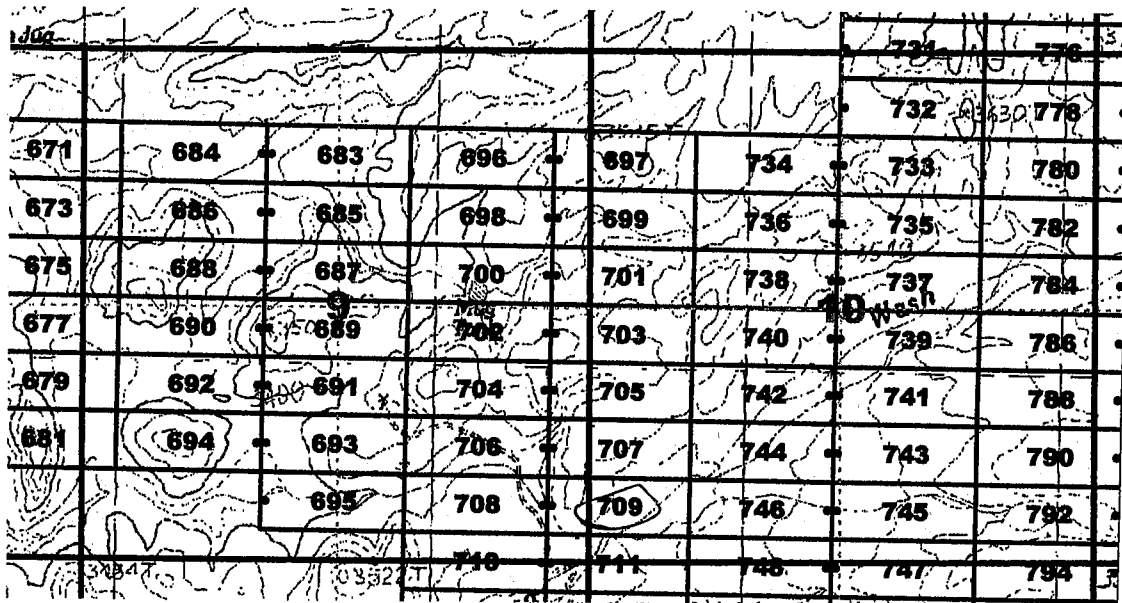 731 776
732 3630 778
671 684 683 696 697 734 733 780
673 686 685 698 699 736 735 782
675 688 687 700 701 738 737 784
9 10 Wash
677 690 689 702 703 740 739 786
679 692 691 704 705 742 741 788
681 694 693 706 707 744 743 790
695 708 709 746 745 792
710 711 748 747 794